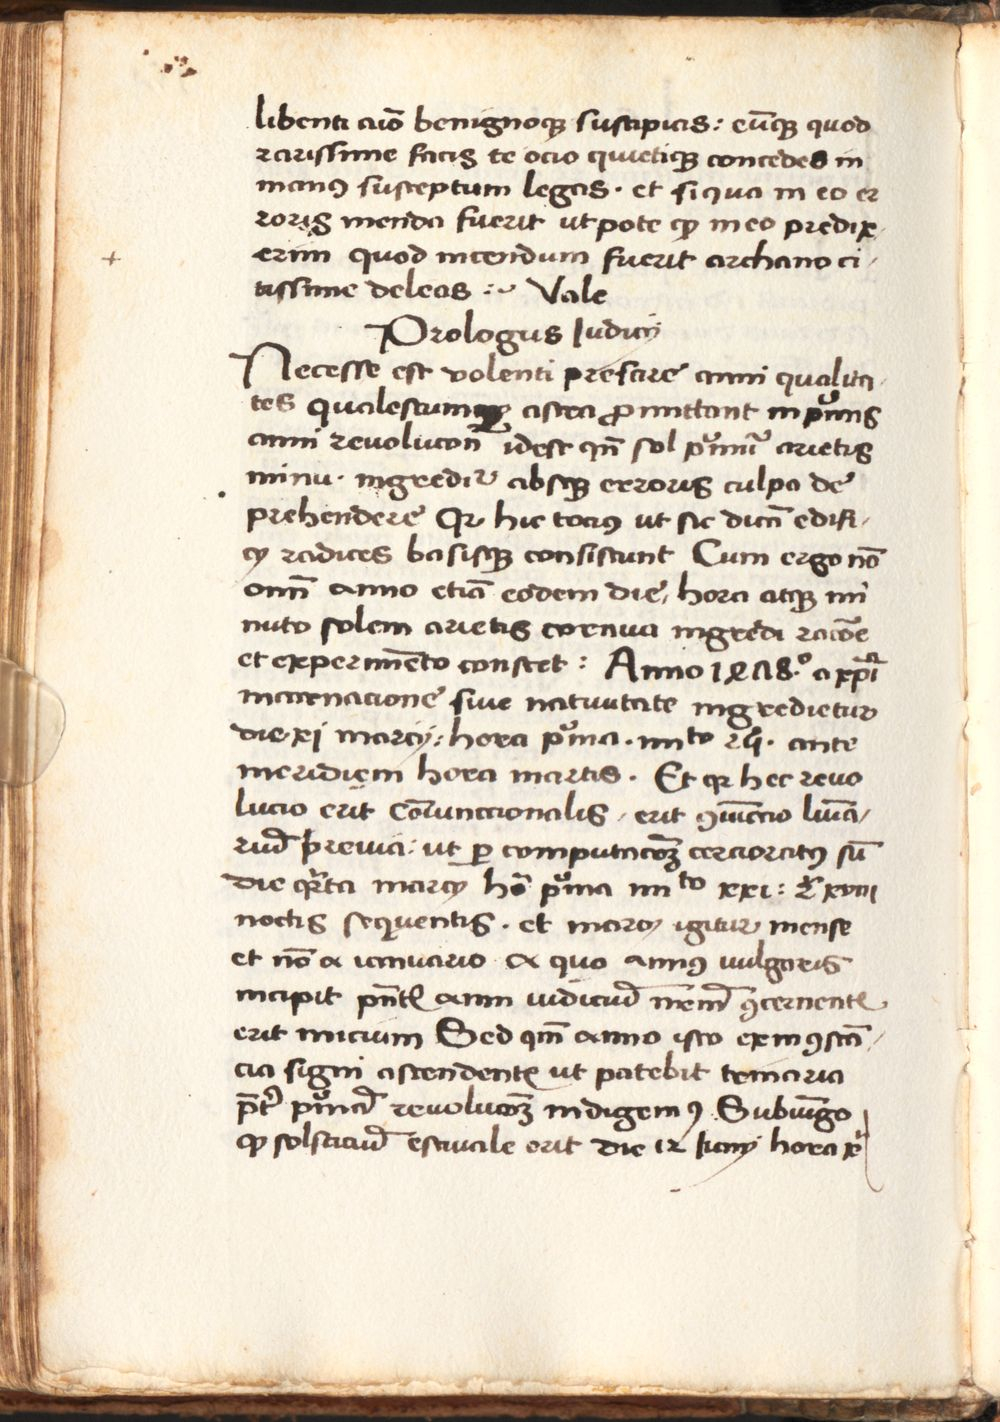 libenti aīo benignoqꝫ suscipias: eūqꝫ quod
rarissime facis te ocio quietiqꝫ concedes in
manꝰ susceptum legas. et si qua in eo er
roris menda fuerit utpote qꝫ in eo predix,
erim quod incendum fuerit archano ci,
tissime deleas :~ Vale
Prologus Iudicij
Necesse est volenti presare anni qualita,
tes qualescumqꝫ astra promittant in primis
anni revolucōn idest qn̄ sol primū arietis
minu. ingreditr absqꝫ erroris culpa de
prehendere Qr hic tociꝰ ut sic dicā edifi,
cij radices basisqꝫ consistunt Cum ergo nō
omī anno etiā eodem die, hora atqꝫ mi
nuto solem arietis cornua ingredi racōe
et experimēto constet : Anno 1ꝝ18.º a xp̄i
incarnacione sive nativitate ingredietur
die xi marcij: hora prima. minto ante
meridiem hora martis. Et qr hec revo
lucio erit cōiunccionalis, erit ꝯiūccio luīa,
riū previa: ut p computacōꝫ cercioratꝰ sū
die qrta marcij hō prima minto xxi: xviii
noctis sequentis. et marcij igitur mense
et nō a ianuario a quo annꝰ vulgaris
incipit pn̄tꝭ anni iudiciū ꝯcernentꝭ
erit inicium Sed qm̄ anno isto ex inꝯstā,
cia signi ascendentꝭ ut patebit temaria
primā revolucōꝫ indigemꝰ Subiūgo
qꝫ solsticiū estivale erit die 12 Iunij hora